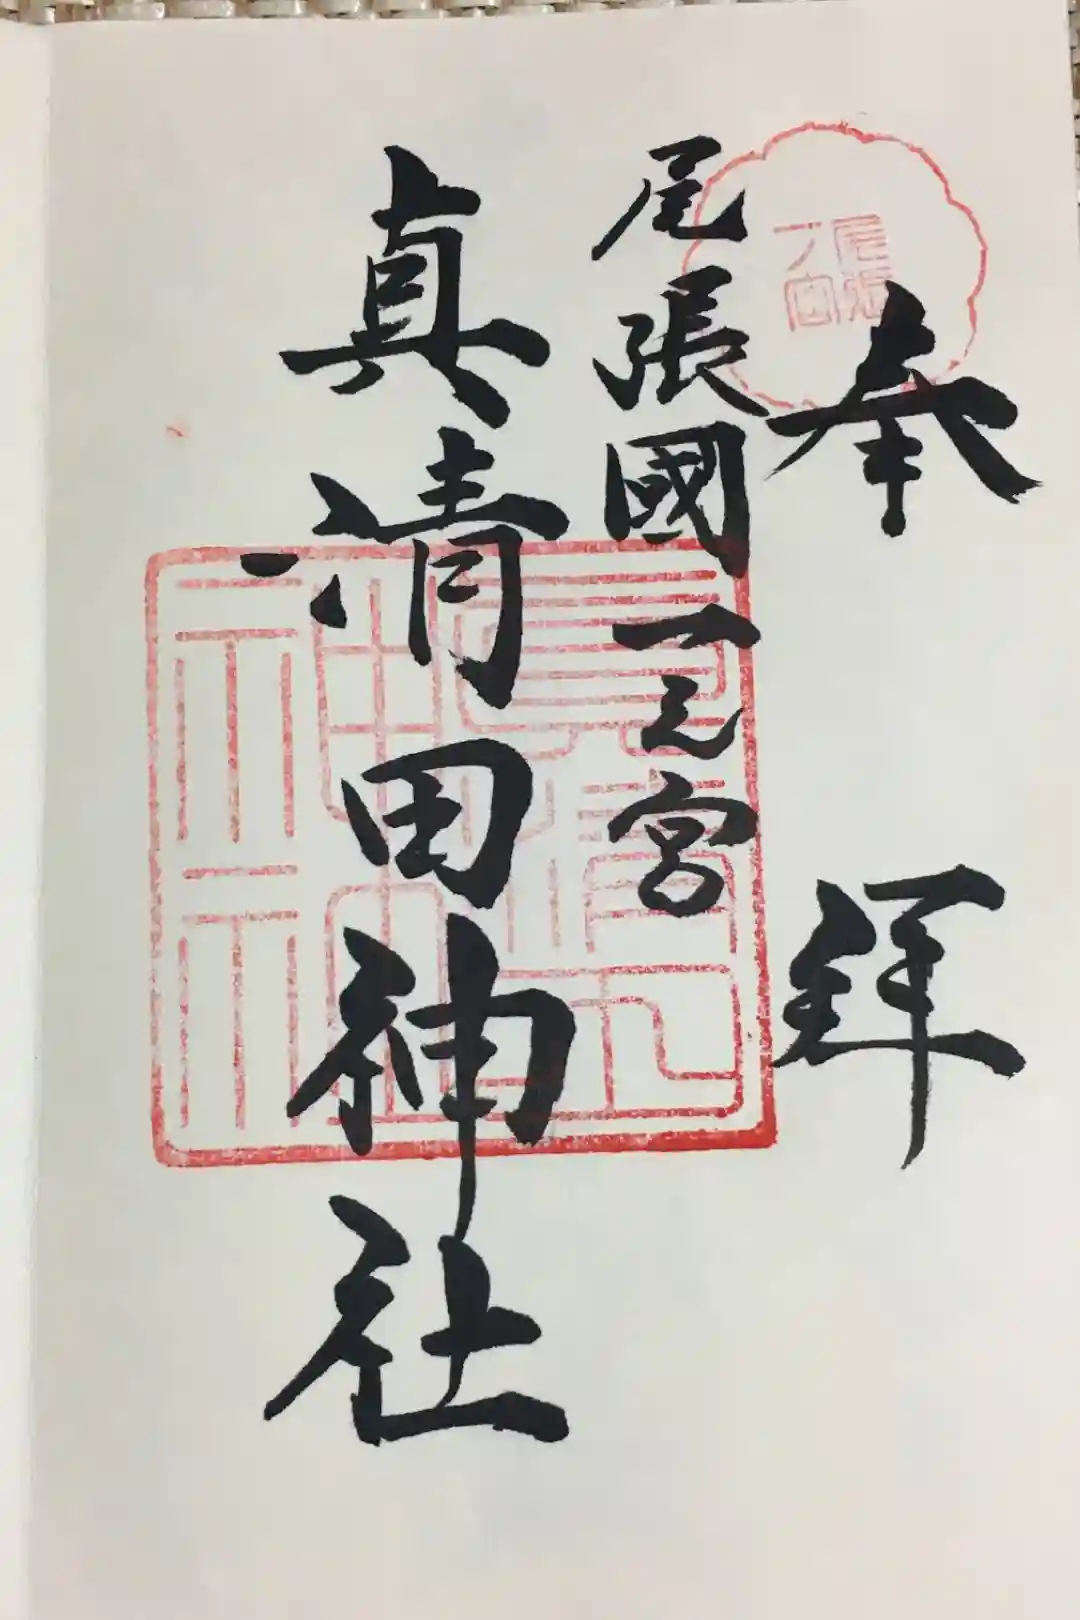 奉拜
尾張國一之宮
真清田神社
尾張
一宮
真清田
神社